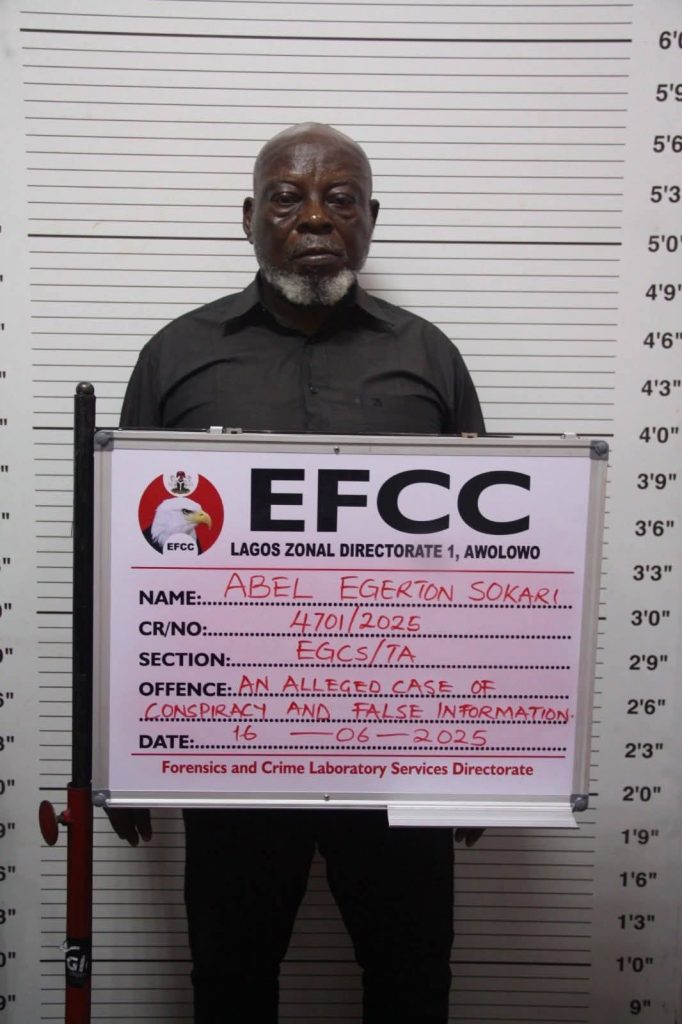 6'0
5'9
5'6
5'3
5'0"
4'9"
4'6"
4'3"
4'0"
EFCC
EFCC
LAGOS ZONAL DIRECTORATE 1, AWOLOWO
NAME: ABEL EGERTON SOKARI
CR/NO: 4701/2025
SECTION: EGCS/TA
OFFENCE: AN ALLEGED CASE OF
CONSPIRACY AND FALSE INFORMATION.
DATE: 16 — 06 — 2025
Forensics and Crime Laboratory Services Directorate
3'9"
3'6"
3'3"
3'0"
2'9"
2'6"
2'3"
2'0"
1'9"
1'6"
1'3"
1'0"
9"